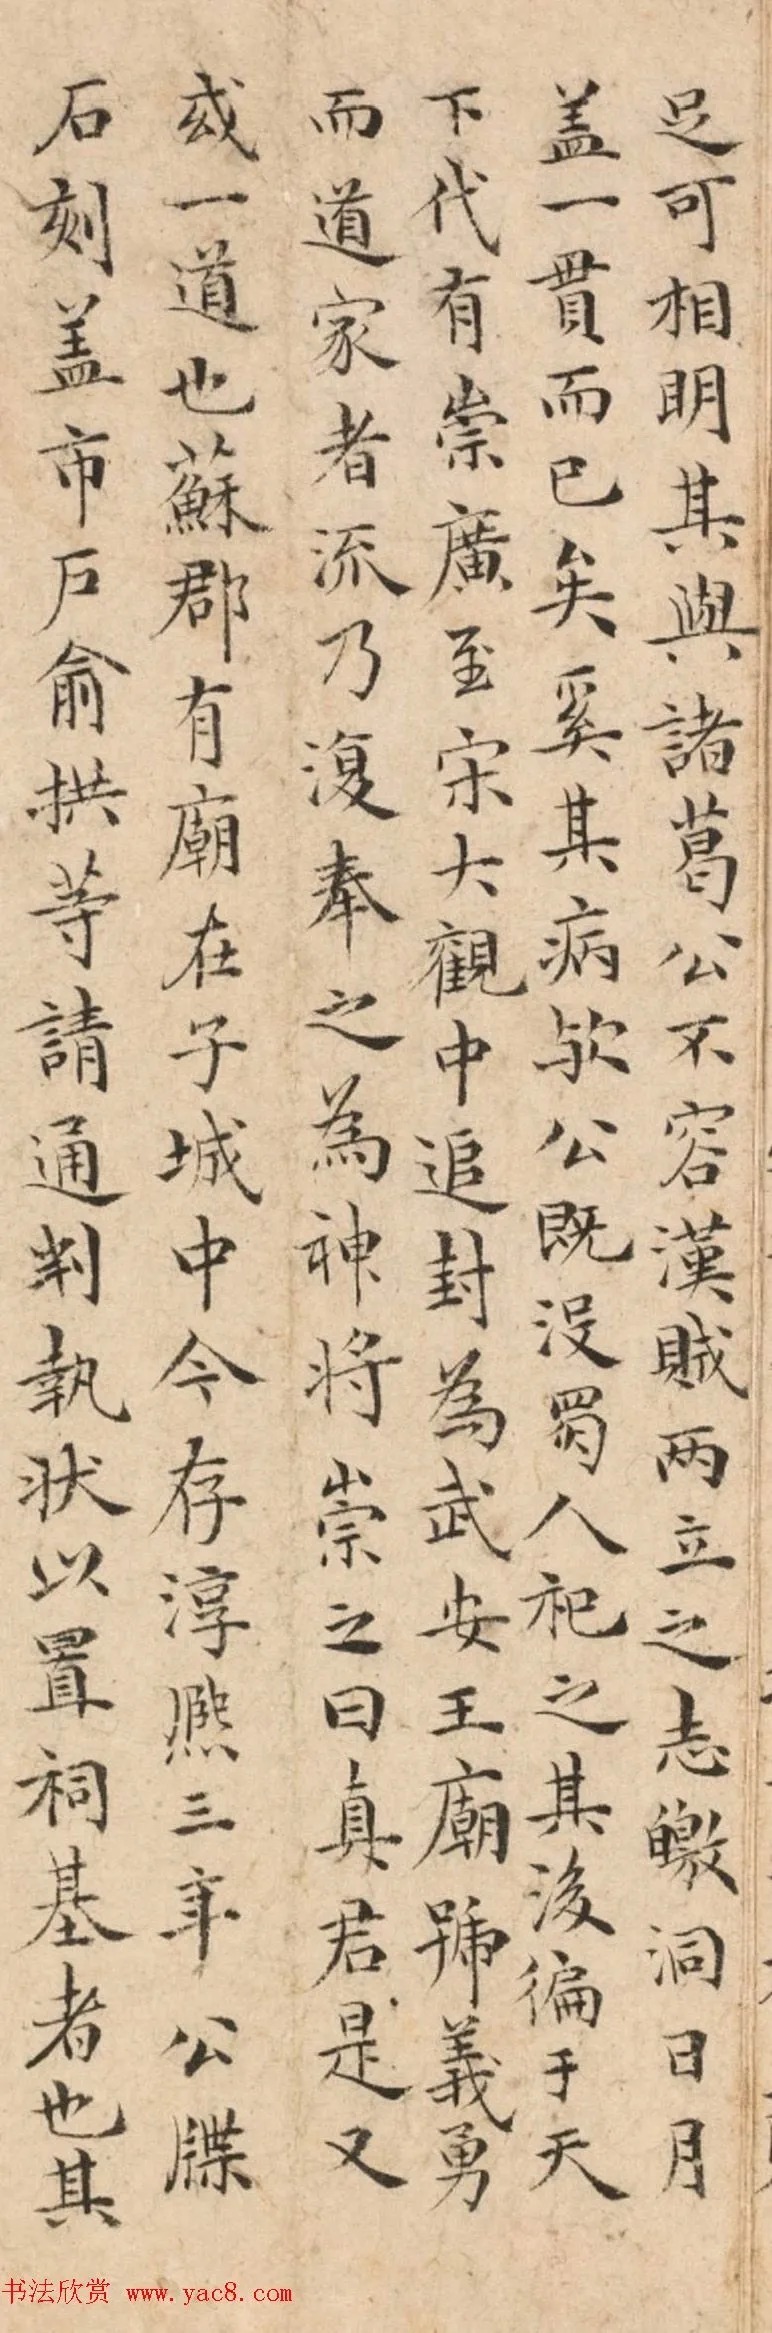 足可相明其與諸葛公不容漢賊兩立之志皦洞日月
盖一貫而已矣奚其病歟公既沒蜀人祀之其後徧于天
下代有崇廣至宋大觀中追封為武安王廟號義勇
而道家者流乃復奉之為神將崇之曰真君是又
或一道也蘇郡有廟在子城中今存淳熙三年公牒
石刻盖市戶俞拱等請通判執狀以置祠基者也其
书法欣赏 www.yac8.com